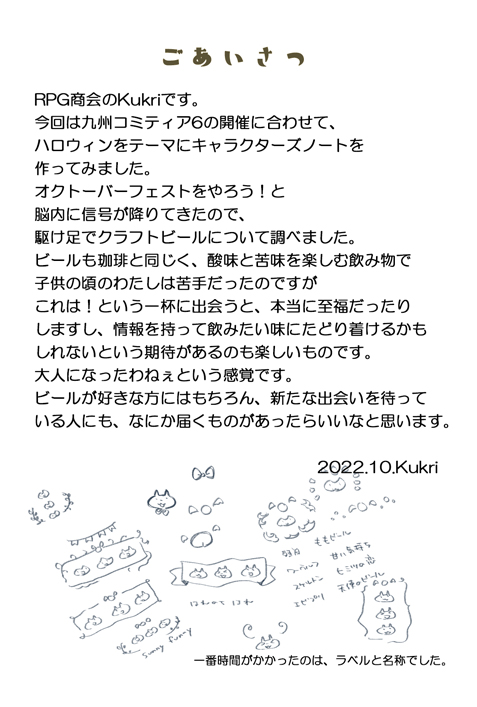 ごあいさつ
RPG商会のKukriです。
今回は九州コミティア6の開催に合わせて、
ハロウィンをテーマにキャラクターズノートを
作ってみました。
オクトーバーフェストをやろう！と
脳内に信号が降りてきたので、
駆け足でクラフトビールについて調べました。
ビールも珈琲と同じく、酸味と苦味を楽しむ飲み物で
子供の頃のわたしは苦手だったのですが
これは！という一杯に出会うと、本当に至福だったり
しますし、情報を持って飲みたい味にたどり着けるかも
しれないという期待があるのも楽しいものです。
大人になったわねぇという感覚です。
ビールが好きな方にはもちろん、新たな出会いを待って
いる人にも、なにか届くものがあったらいいなと思います。
2022.10.Kukri
ももビール
甘い気持ち
ヒミツの恋
天使のビール
sunny funny
一番時間がかかったのは、ラベルと名称でした。